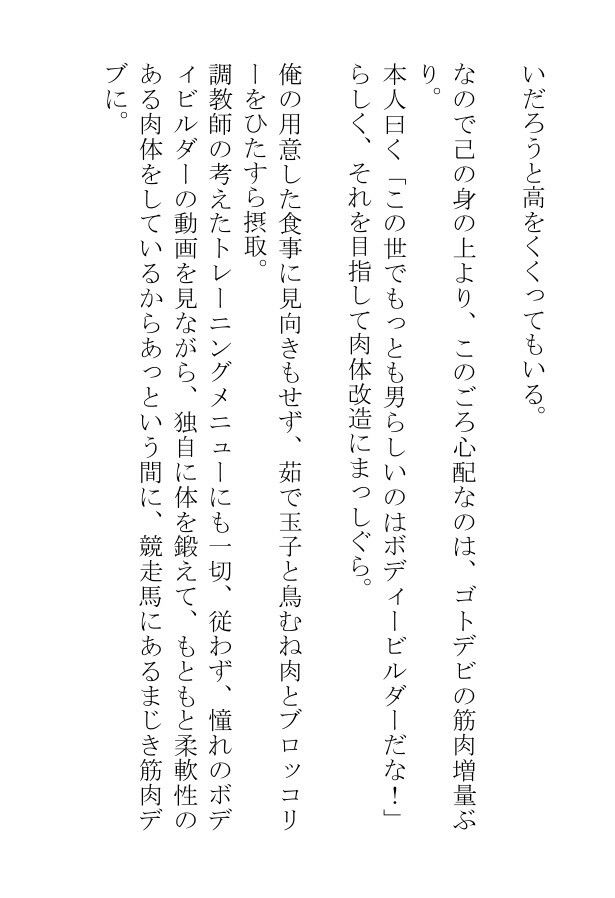 いだろうと高をくくってもいる。
なので己の身の上より、このごろ心配なのは、ゴトデビの筋肉増量ぶ
り。
本人曰く「この世でもっとも男らしいのはボディービルダーだな！」
らしく、それを目指して肉体改造にまっしぐら。
俺の用意した食事に見向きもせず、茹で玉子と鳥むね肉とブロッコリ
ーをひたすら摂取。
調教師の考えたトレーニングメニューにも一切、従わず、憧れのボデ
ィビルダーの動画を見ながら、独自に体を鍛えて、もともと柔軟性の
ある肉体をしているからあっという間に、競走馬にあるまじき筋肉デ
ブに。